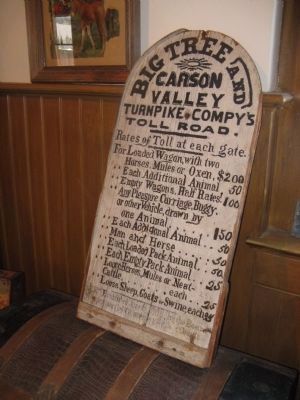 BIG TREE AND
CARSON
VALLEY
TURNPIKE COMPY'S
TOLL ROAD.
Rates of Toll at each gate.
For Loaded Wagon, with two
Horses, Mules or Oxen, $2.00
Each Additional Animal 50
Empty Wagons, Half Rates. 1.00
Any Pleasure Carriage, Buggy,
or other Vehicle, drawn by
one Animal 1.50
Each Additional Animal 50
Man and Horse 50
Each Loaded Pack Animal 50
Each Empty Pack Animal 25
Loose Horses, Mules or Neat-
Cattle, each 25
Loose Sheep, Goats or Swine, each